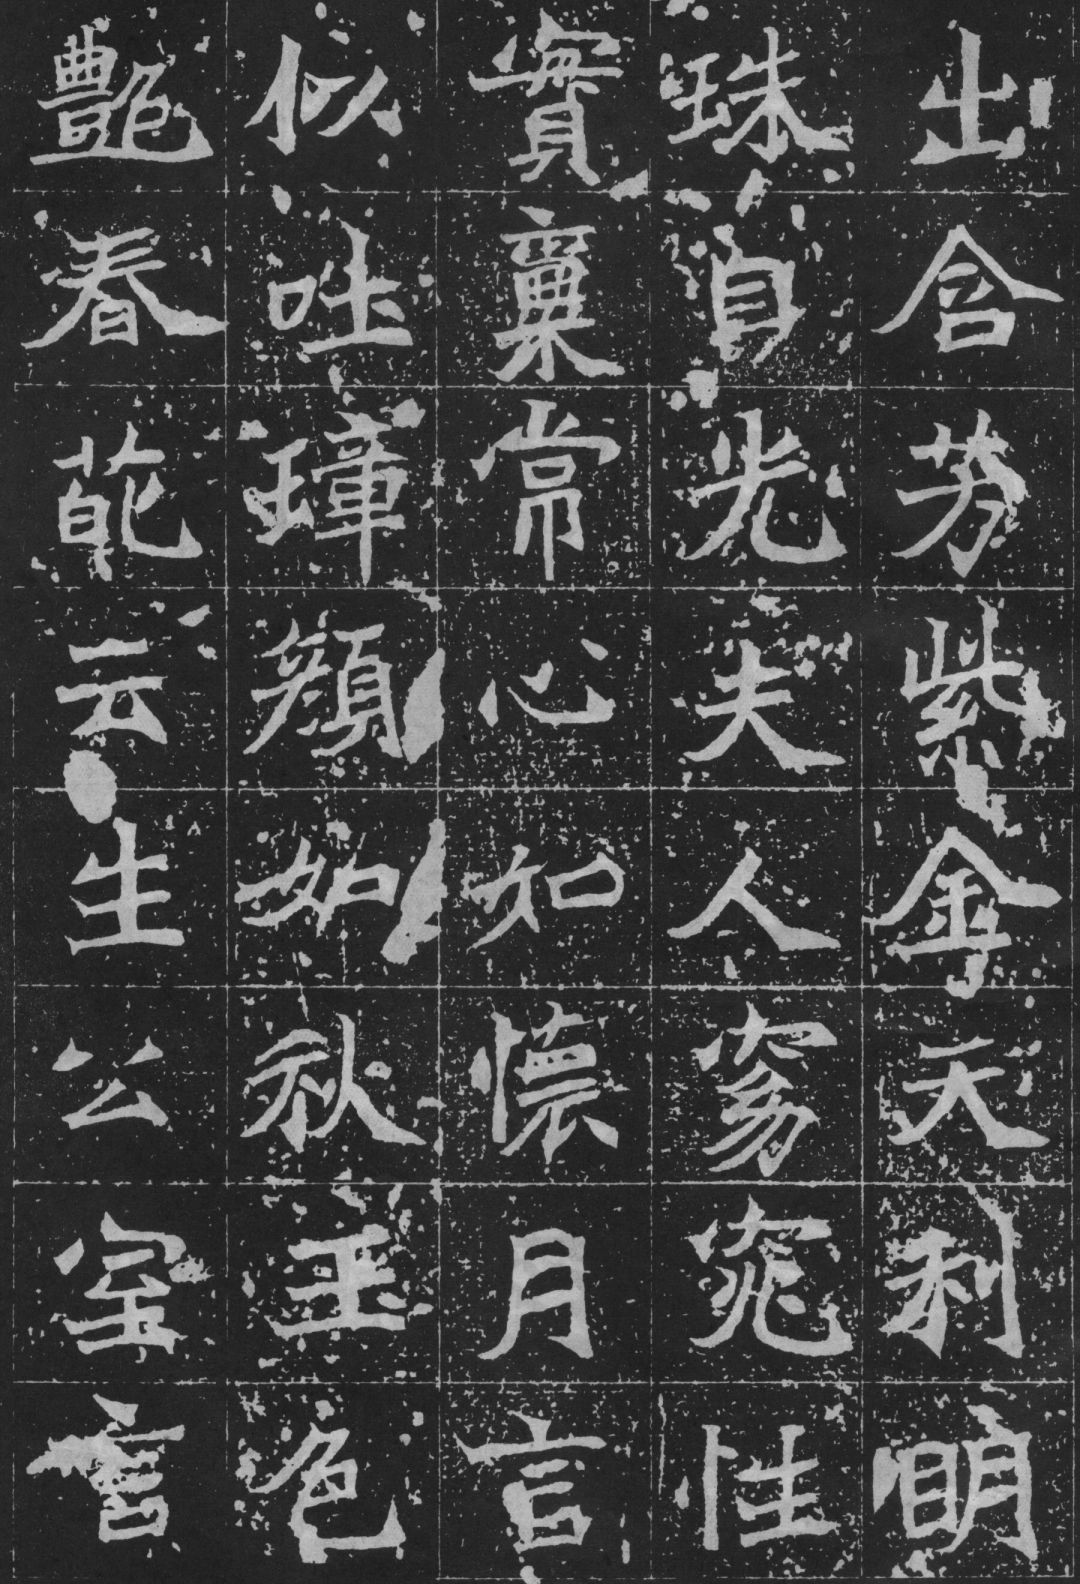 出含芳紫金天利朙
珠自光夫人窈窕性
實稟常心知懷月言
似吐璋顏如秋玉色
艷春葩云生公室言